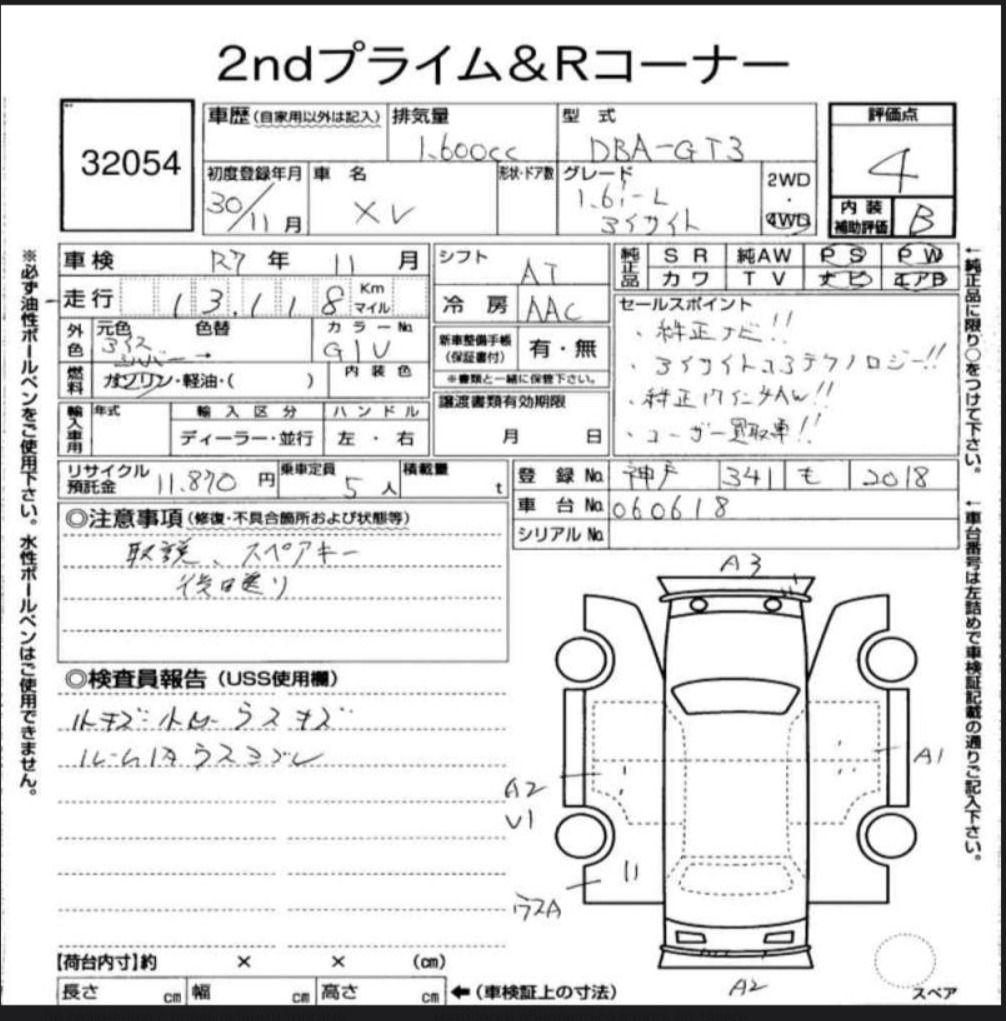 2ndプライム&Rコーナー
32054
車歴(自家用以外は記入)
排気量
1.600cc
型式
DBA-GT3
評価点
4
初度登録年月
30/11月
車名
XV
形状・ドア数
グレード
1.6i-L
アイサイト
2WD
・
4WD
内装
補助評価
B
車検 R7年 11月
走行 13,118 Km マイル
外色
元色
アイス
シルバー→
色替
カラーNo.
G1U
燃料
ガソリン・軽油・( )
内装色
輸入車用
年式
輸入区分
ディーラー・並行
ハンドル
左・右
シフト
AT
冷房 AAC
新車整備手帳
(保証書付)
有・無
※書類と一緒に保管下さい。
譲渡書類有効期限
月 日
純正品
SR 純AW PS PW
カワ TV ナビ エアB
セールスポイント
・純正ナビ!!
・アイサイトコアテクノロジー!!
・純正17インチAW!!
・ユーザー買取車!!
リサイクル
預託金
11.870円
乗車定員
5人
積載量
t
登録No. 神戸 341 も 2018
車台No. 060618
シリアルNo.
◎注意事項(修復・不具合箇所および状態等)
取説、スペアキー
後日送り
◎検査員報告(USS使用欄)
ルーム内ウスヨゴレ
A3
A1
A2
U1
ウスA
A2
スペア
【荷台内寸】約 × × (cm)
長さ cm 幅 cm 高さ cm ←(車検証上の寸法)
※必ず油性ボールペンをご使用下さい。水性ボールペンはご使用できません。
←純正品に限り○をつけて下さい。
←車台番号は左詰めで車検証記載の通りご記入下さい。